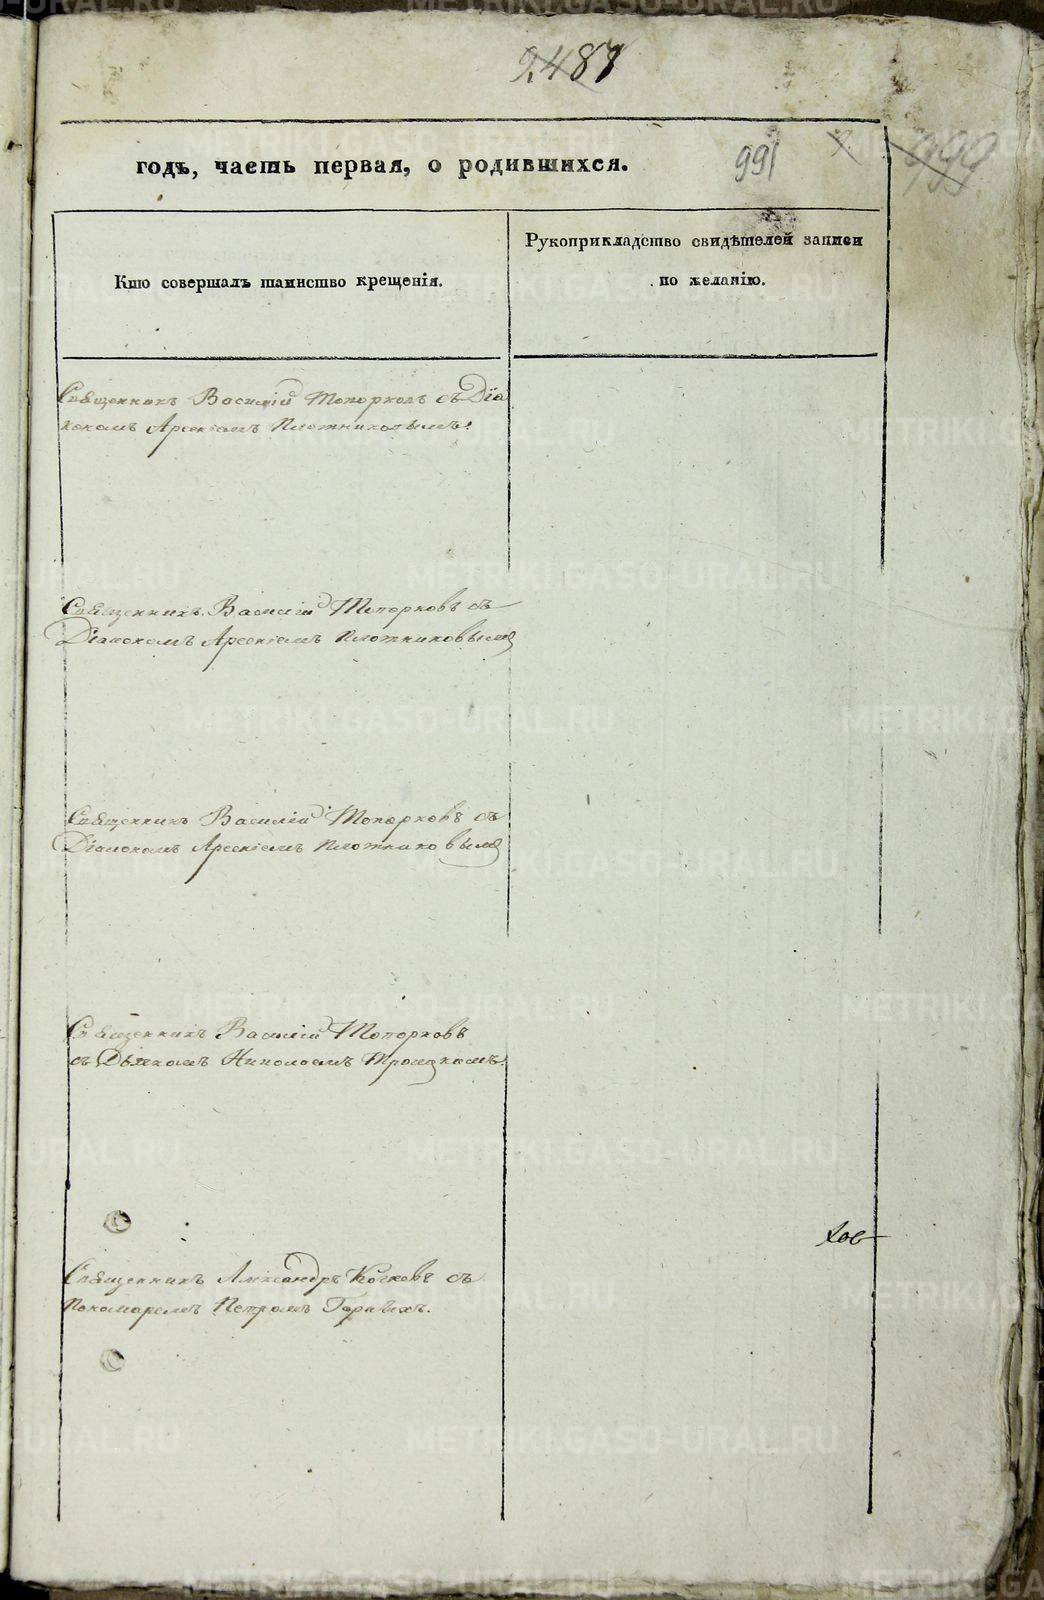 2487
годъ, часть первая, о родившихся.
991
999
Кто совершалъ таинство крещенія.
Рукоприкладство свидѣтелей записи
по желанію.
Священникъ Василій Топорковъ съ Діа
кономъ Арсеніемъ Плотниковымъ.
Священникъ Василій Топорковъ съ
Діакономъ Арсеніемъ Плотниковымъ
Священникъ Василій Топорковъ съ
Діакономъ Арсеніемъ Плотниковымъ
Священникъ Василій Топорковъ
съ Дьячкомъ Николаемъ Троицкимъ.
Священникъ Александръ Кочковъ съ
Пономаремъ Петромъ Горныхъ.
METRIKI.GASO-URAL.RU